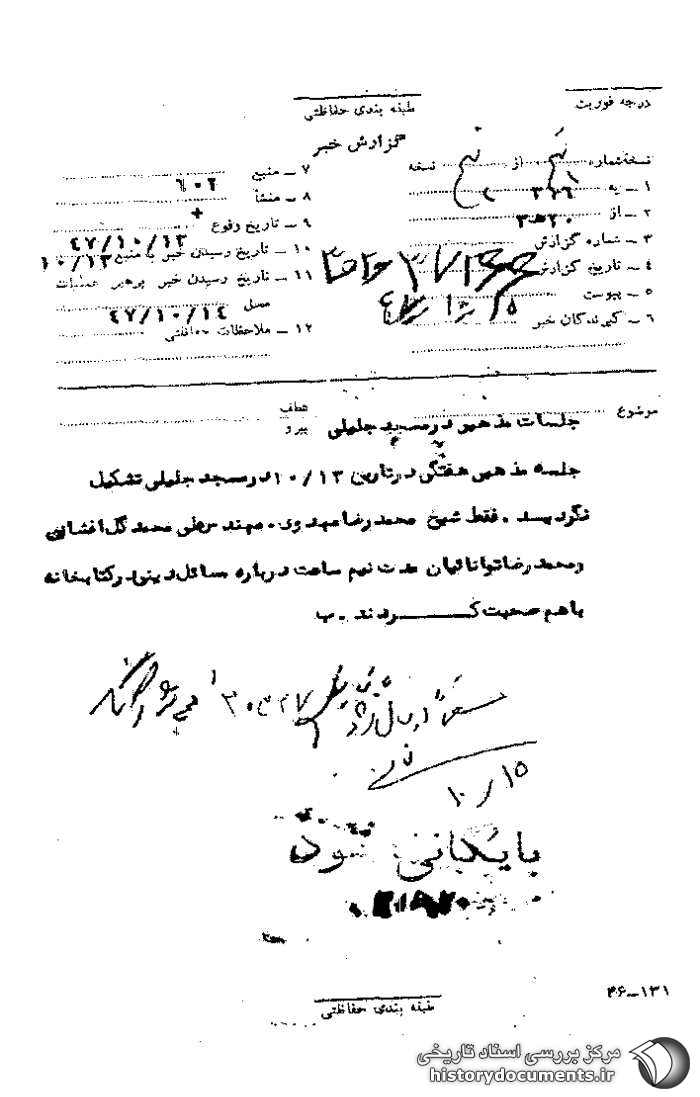 درجه فوریت
طبقه بندی حفاظتی
گزارش خبر
نسخه شماره از نسخه
۱ ـ به ۳۶۶
۲ ـ از ۲۰ه۳
۳ ـ شماره گزارش
۴ ـ تاریخ گزارش
۵ ـ پیوست
۶ ـ گیرندگان خبر
۷ ـ منبع
۸ ـ منشأ
۹ ـ تاریخ وقوع ۴۷/۱۰/۱۳
۱۰ ـ تاریخ رسیدن خبر به منبع ۱۰/۱۳
۱۱ ـ تاریخ رسیدن خبر برهبر عملیات
محل ۴۷/۱۰/۱۴
۱۲ ـ ملاحظات حفاظتی
موضوع جلسات مذهبی در مسجد جلیلی
عطف
پیرو
جلسه مذهبی هفتگی در تاریخ ۱۰/۱۳ در مسجد جلیلی تشکیل
نگردید. فقط شیخ محمد رضا مهدوی، مهندس علی محمد گل افشانی
و محمد رضا توانائیان مدت نیم ساعت درباره مسائل دینی در کتابخانه
با هم صحبت کردند. ب
۱۰/۱۵
بایگانی شود
۴۶ـ۱۳۱
طبقه بندی حفاظتی
مرکز بررسی اسناد تاریخی
historydocuments.ir